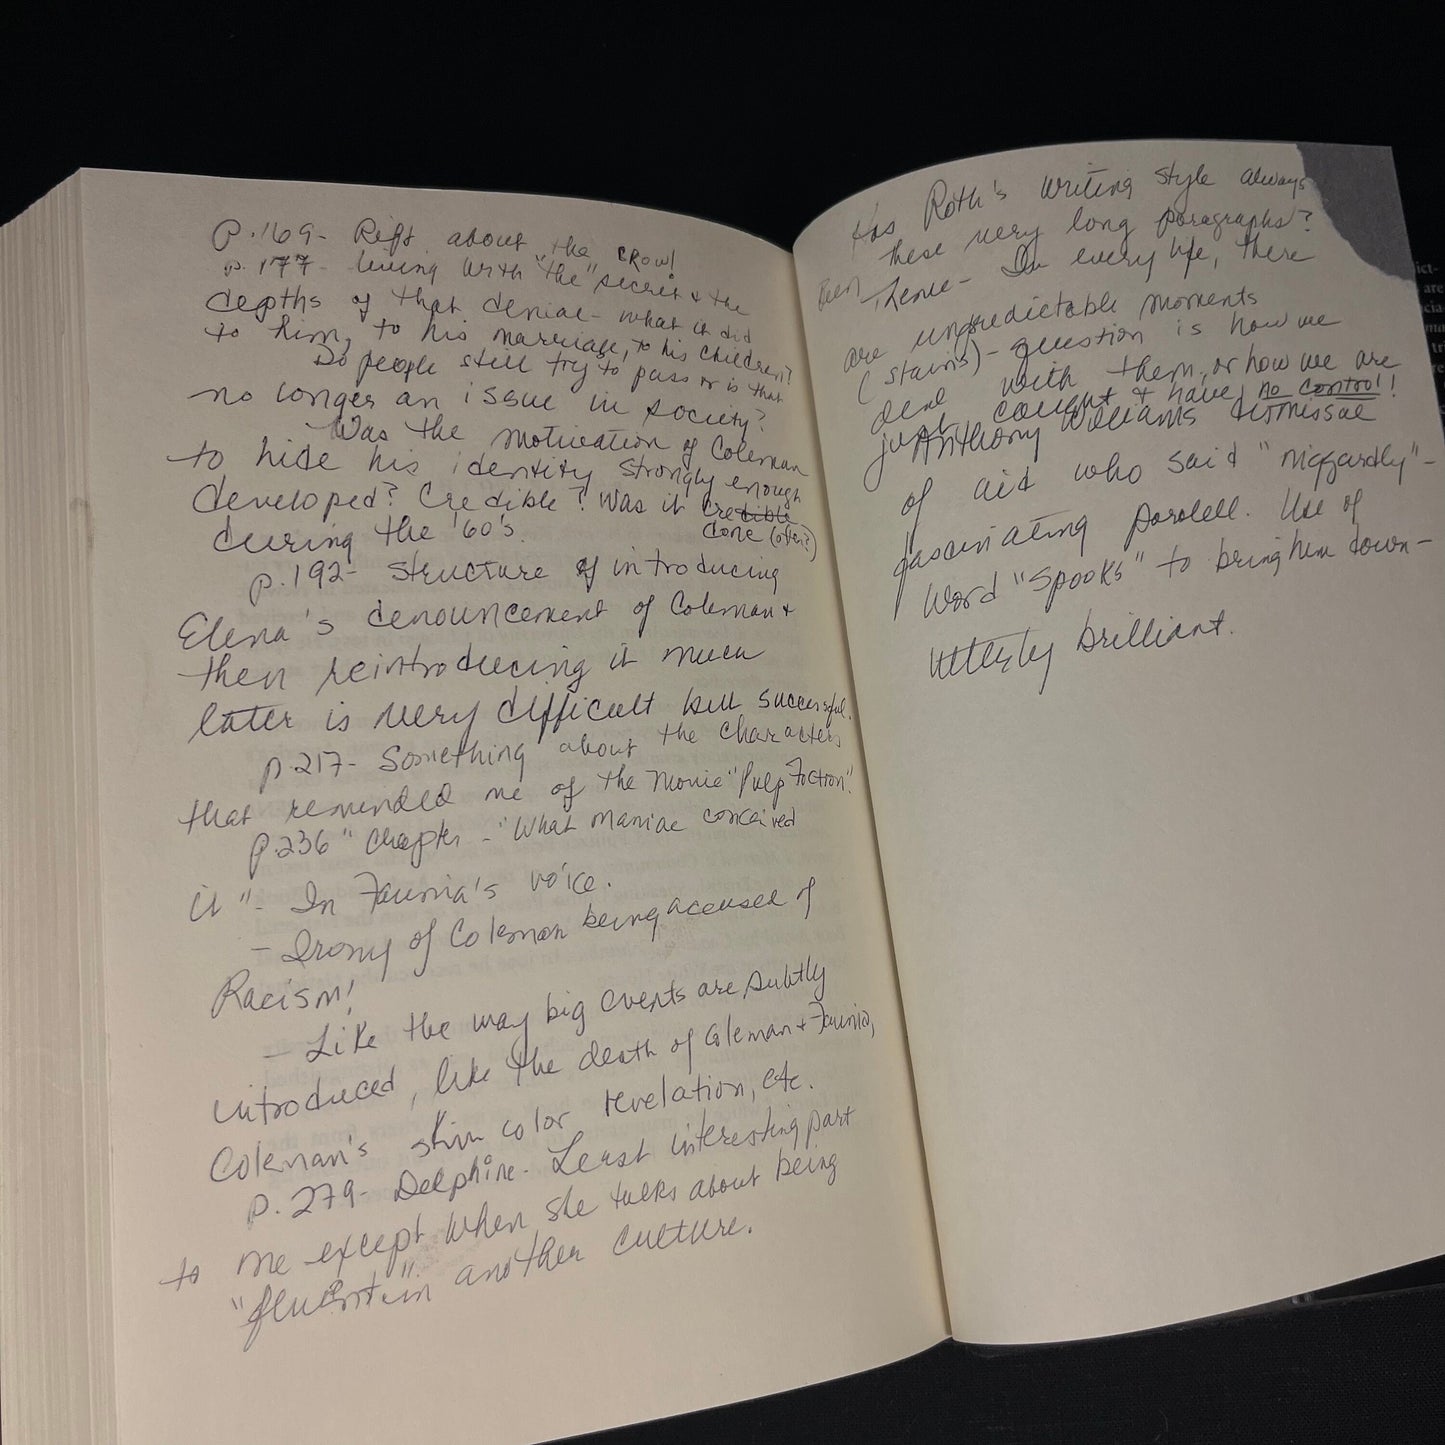 P.169- Riff about "the crow!
P.177- Living with "the" secret & the
depths of that denial - what it did
to him, to his marriage, to his children?
Do people still try to pass or is that
no longer an issue in society?
Was the motivation of Coleman
to hide his identity strongly enough
developed? Credible? Was it credible
done (often?)
during the '60's.
p.192- structure of introducing
Elena's denouncement of Coleman &
then reintroducing it much
later is very difficult but successful.
p.217- Something about the characters
that reminded me of the movie "Pulp Fiction".
P.236 "Chapter - "What maniac conceived
it" - In Faunia's voice.
- Irony of Coleman being accused of
Racism!
- Like the way big events are subtly
introduced, like the death of Coleman & Faunia,
Coleman's skin color revelation, etc.
p.279- Delphine- Least interesting part
to me except when she talks about being
"fluent" in another culture.
Has Roth's writing style always
Been these very long paragraphs?
Theme - In every life, there
are unpredictable moments
(stains) - question is how we
deal with them, or how we are
just caught & have no control!
Anthony Williams dismissal
of aid who said "niggardly" -
fascinating paralell. Use of
Word "Spooks" to bring him down -
utterly brilliant.
ict-
are
cia
tri
re